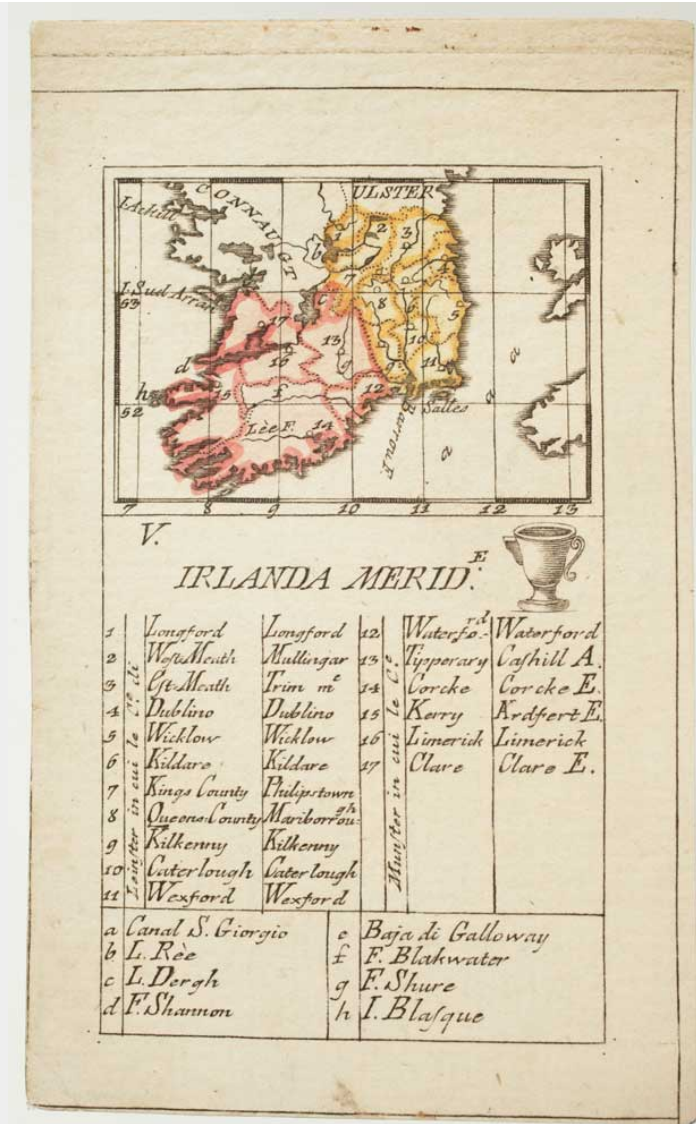 ULSTER
CONNAUGT
I. Achill
I. Sud Arran
53
52
Lèe F.
Barrow F.
Saltes
1
2
3
b
7
4
c
8
6
5
17
13
10
d
16
g
9
11
h
15
f
12
14
a
a
a
7 8 9 10 11 12 13
V.
IRLANDA MERID.E
Leinster in cui le C.e di
1 Longford Longford
2 West-Meath Mullingar
3 Est-Meath Trim m.e
4 Dublino Dublino
5 Wicklow Wicklow
6 Kildare Kildare
7 Kings County Philipstown
8 Queens County Mariborrough:
9 Kilkenny Kilkenny
10 Caterlough Caterlough
11 Wexford Wexford
Munster in cui le C.e
12 Waterfo.rd Waterford
13 Tipperary Caſhill A.
14 Corcke Corcke E.
15 Kerry Ardfert E.
16 Limerick Limerick
17 Clare Clare E.
a Canal S. Giorgio
b L. Rèe
c L. Dergh
d F. Shannon
e Baja di Galloway
f F. Blakwater
g F. Shure
h I. Blaſque